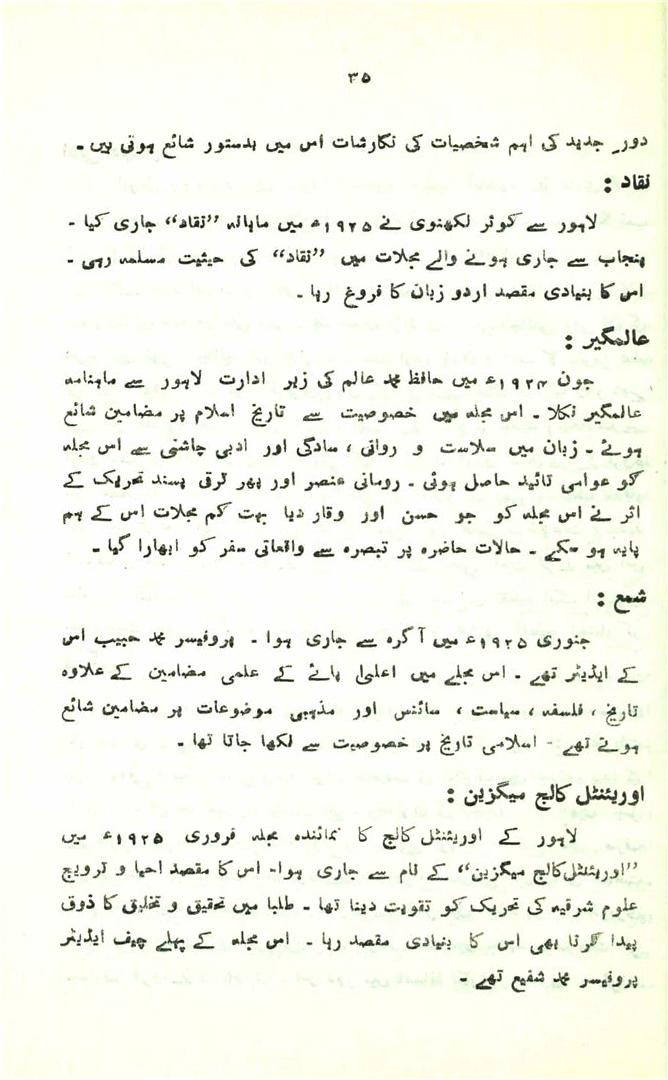 ۳۵
دور جدید کی اہم شخصیات کی نگارشات اس میں بدستور شائع ہوتی ہیں ۔
نقاد :
لاہور سے کوثر لکھنوی نے ۱۹۲۵ء میں ماہانہ ”نقاد“ جاری کیا ۔
پنجاب سے جاری ہونے والے مجلات میں ”نقاد“ کی حیثیت مسلمہ رہی ۔
اس کا بنیادی مقصد اردو زبان کا فروغ رہا ۔
عالمگیر :
جون ۱۹۲۴ء میں حافظ محمد عالم کی زیر ادارت لاہور سے ماہنامہ
عالمگیر نکلا ۔ اس مجلہ میں خصوصیت سے تاریخ اسلام پر مضامین شائع
ہوئے ۔ زبان میں سلاست و روانی ، سادگی اور ادبی چاشنی سے اس مجلہ
کو عوامی تائید حاصل ہوئی ۔ رومانی عنصر اور پھر ترقی پسند تحریک کے
اثر نے اس مجلہ کو جو حسن اور وقار دیا بہت کم مجلات اس کے ہم
پایہ ہو سکے ۔ حالات حاضرہ پر تبصرہ سے واقعاتی سفر کو ابھارا گیا ۔
شمع :
جنوری ۱۹۲۵ء میں آگرہ سے جاری ہوا ۔ پروفیسر محمد حبیب اس
کے ایڈیٹر تھے ۔ اس مجلے میں اعلیٰ پائے کے علمی مضامین کے علاوہ
تاریخ ، فلسفہ ، سیاست ، سائنس اور مذہبی موضوعات پر مضامین شائع
ہوتے تھے - اسلامی تاریخ پر خصوصیت سے لکھا جاتا تھا ۔
اوریئنٹل کالج میگزین :
لاہور کے اوریئنٹل کالج کا نمائندہ مجلہ فروری ۱۹۲۵ء میں
”اوریئنٹل کالج میگزین“ کے نام سے جاری ہوا- اس کا مقصد احیا و ترویج
علوم شرقیہ کی تحریک کو تقویت دینا تھا ۔ طلبا میں تحقیق و تخلیق کا ذوق
پیدا کرنا بھی اس کا بنیادی مقصد رہا ۔ اس مجلہ کے پہلے چیف ایڈیٹر
پروفیسر محمد شفیع تھے ۔